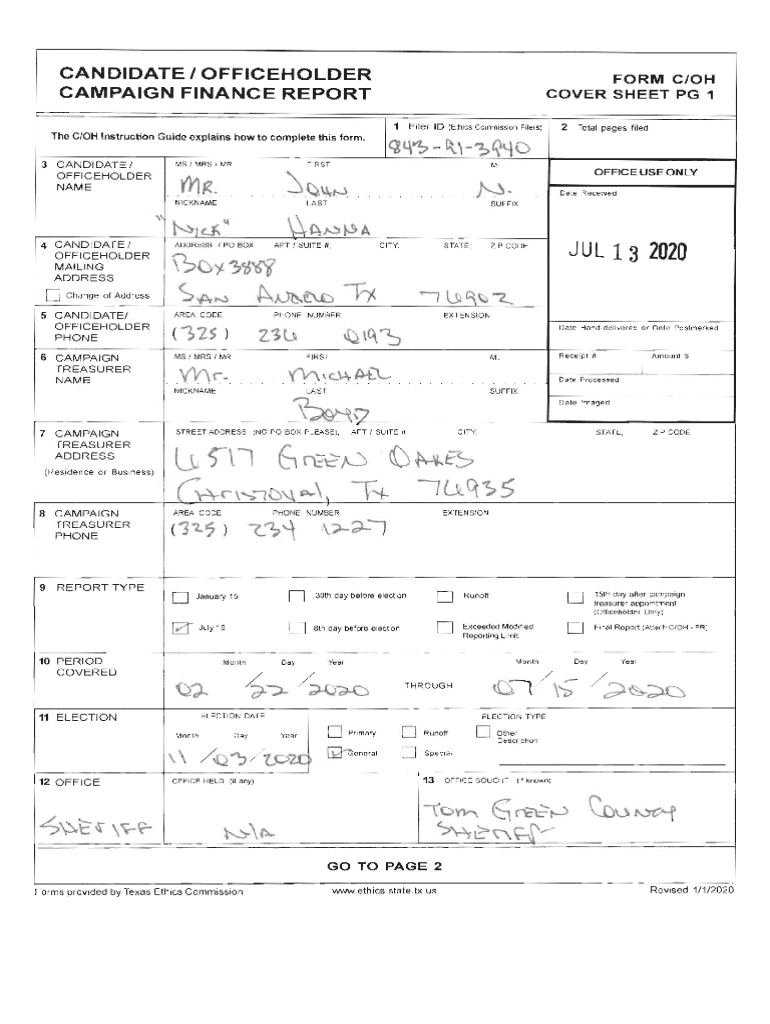 CANDIDATE / OFFICEHOLDER
CAMPAIGN FINANCE REPORT
FORM C/OH
COVER SHEET PG 1
The C/OH Instruction Guide explains how to complete this form.
1 Filer ID (Ethics Commission Filers)
843-91-3940
2 Total pages filed
3 CANDIDATE / OFFICEHOLDER NAME
MS / MRS / MR FIRST MI
MR. JOHN N.
NICKNAME LAST SUFFIX
"NICK" HANNA
OFFICE USE ONLY
Date Received
JUL 13 2020
4 CANDIDATE / OFFICEHOLDER MAILING ADDRESS
Change of Address
ADDRESS / PO BOX APT / SUITE #; CITY; STATE; ZIP CODE
BOX 3888
SAN ANGELO TX 76902
5 CANDIDATE/ OFFICEHOLDER PHONE
AREA CODE PHONE NUMBER EXTENSION
(325) 236 0193
Date Hand-delivered or Date Postmarked
6 CAMPAIGN TREASURER NAME
MS / MRS / MR FIRST MI
Mr. MICHAEL
NICKNAME LAST SUFFIX
BOYD
Receipt # Amount $
Date Processed
Date Imaged
7 CAMPAIGN TREASURER ADDRESS
(Residence or Business)
STREET ADDRESS (NO PO BOX PLEASE); APT / SUITE # CITY; STATE; ZIP CODE
6517 GREEN OAKES
CHRISTOVAL, TX 76935
8 CAMPAIGN TREASURER PHONE
AREA CODE PHONE NUMBER EXTENSION
(325) 234 1227
9 REPORT TYPE
January 15 30th day before election Runoff 15th day after campaign treasurer appointment (Officeholder Only)
July 15 8th day before election Exceeded Modified Reporting Limit Final Report (Attach C/OH - FR)
10 PERIOD COVERED
Month Day Year Month Day Year
02 / 22 / 2020 THROUGH 07 / 15 / 2020
11 ELECTION
ELECTION DATE ELECTION TYPE
Month Day Year
11 / 03 / 2020
Primary Runoff Other Description
General Special
12 OFFICE
OFFICE HELD (if any)
13 OFFICE SOUGHT (if known)
SHERIFF N/A TOM GREEN COUNTY
SHERIFF
GO TO PAGE 2
Forms provided by Texas Ethics Commission www.ethics.state.tx.us Revised 1/1/2020